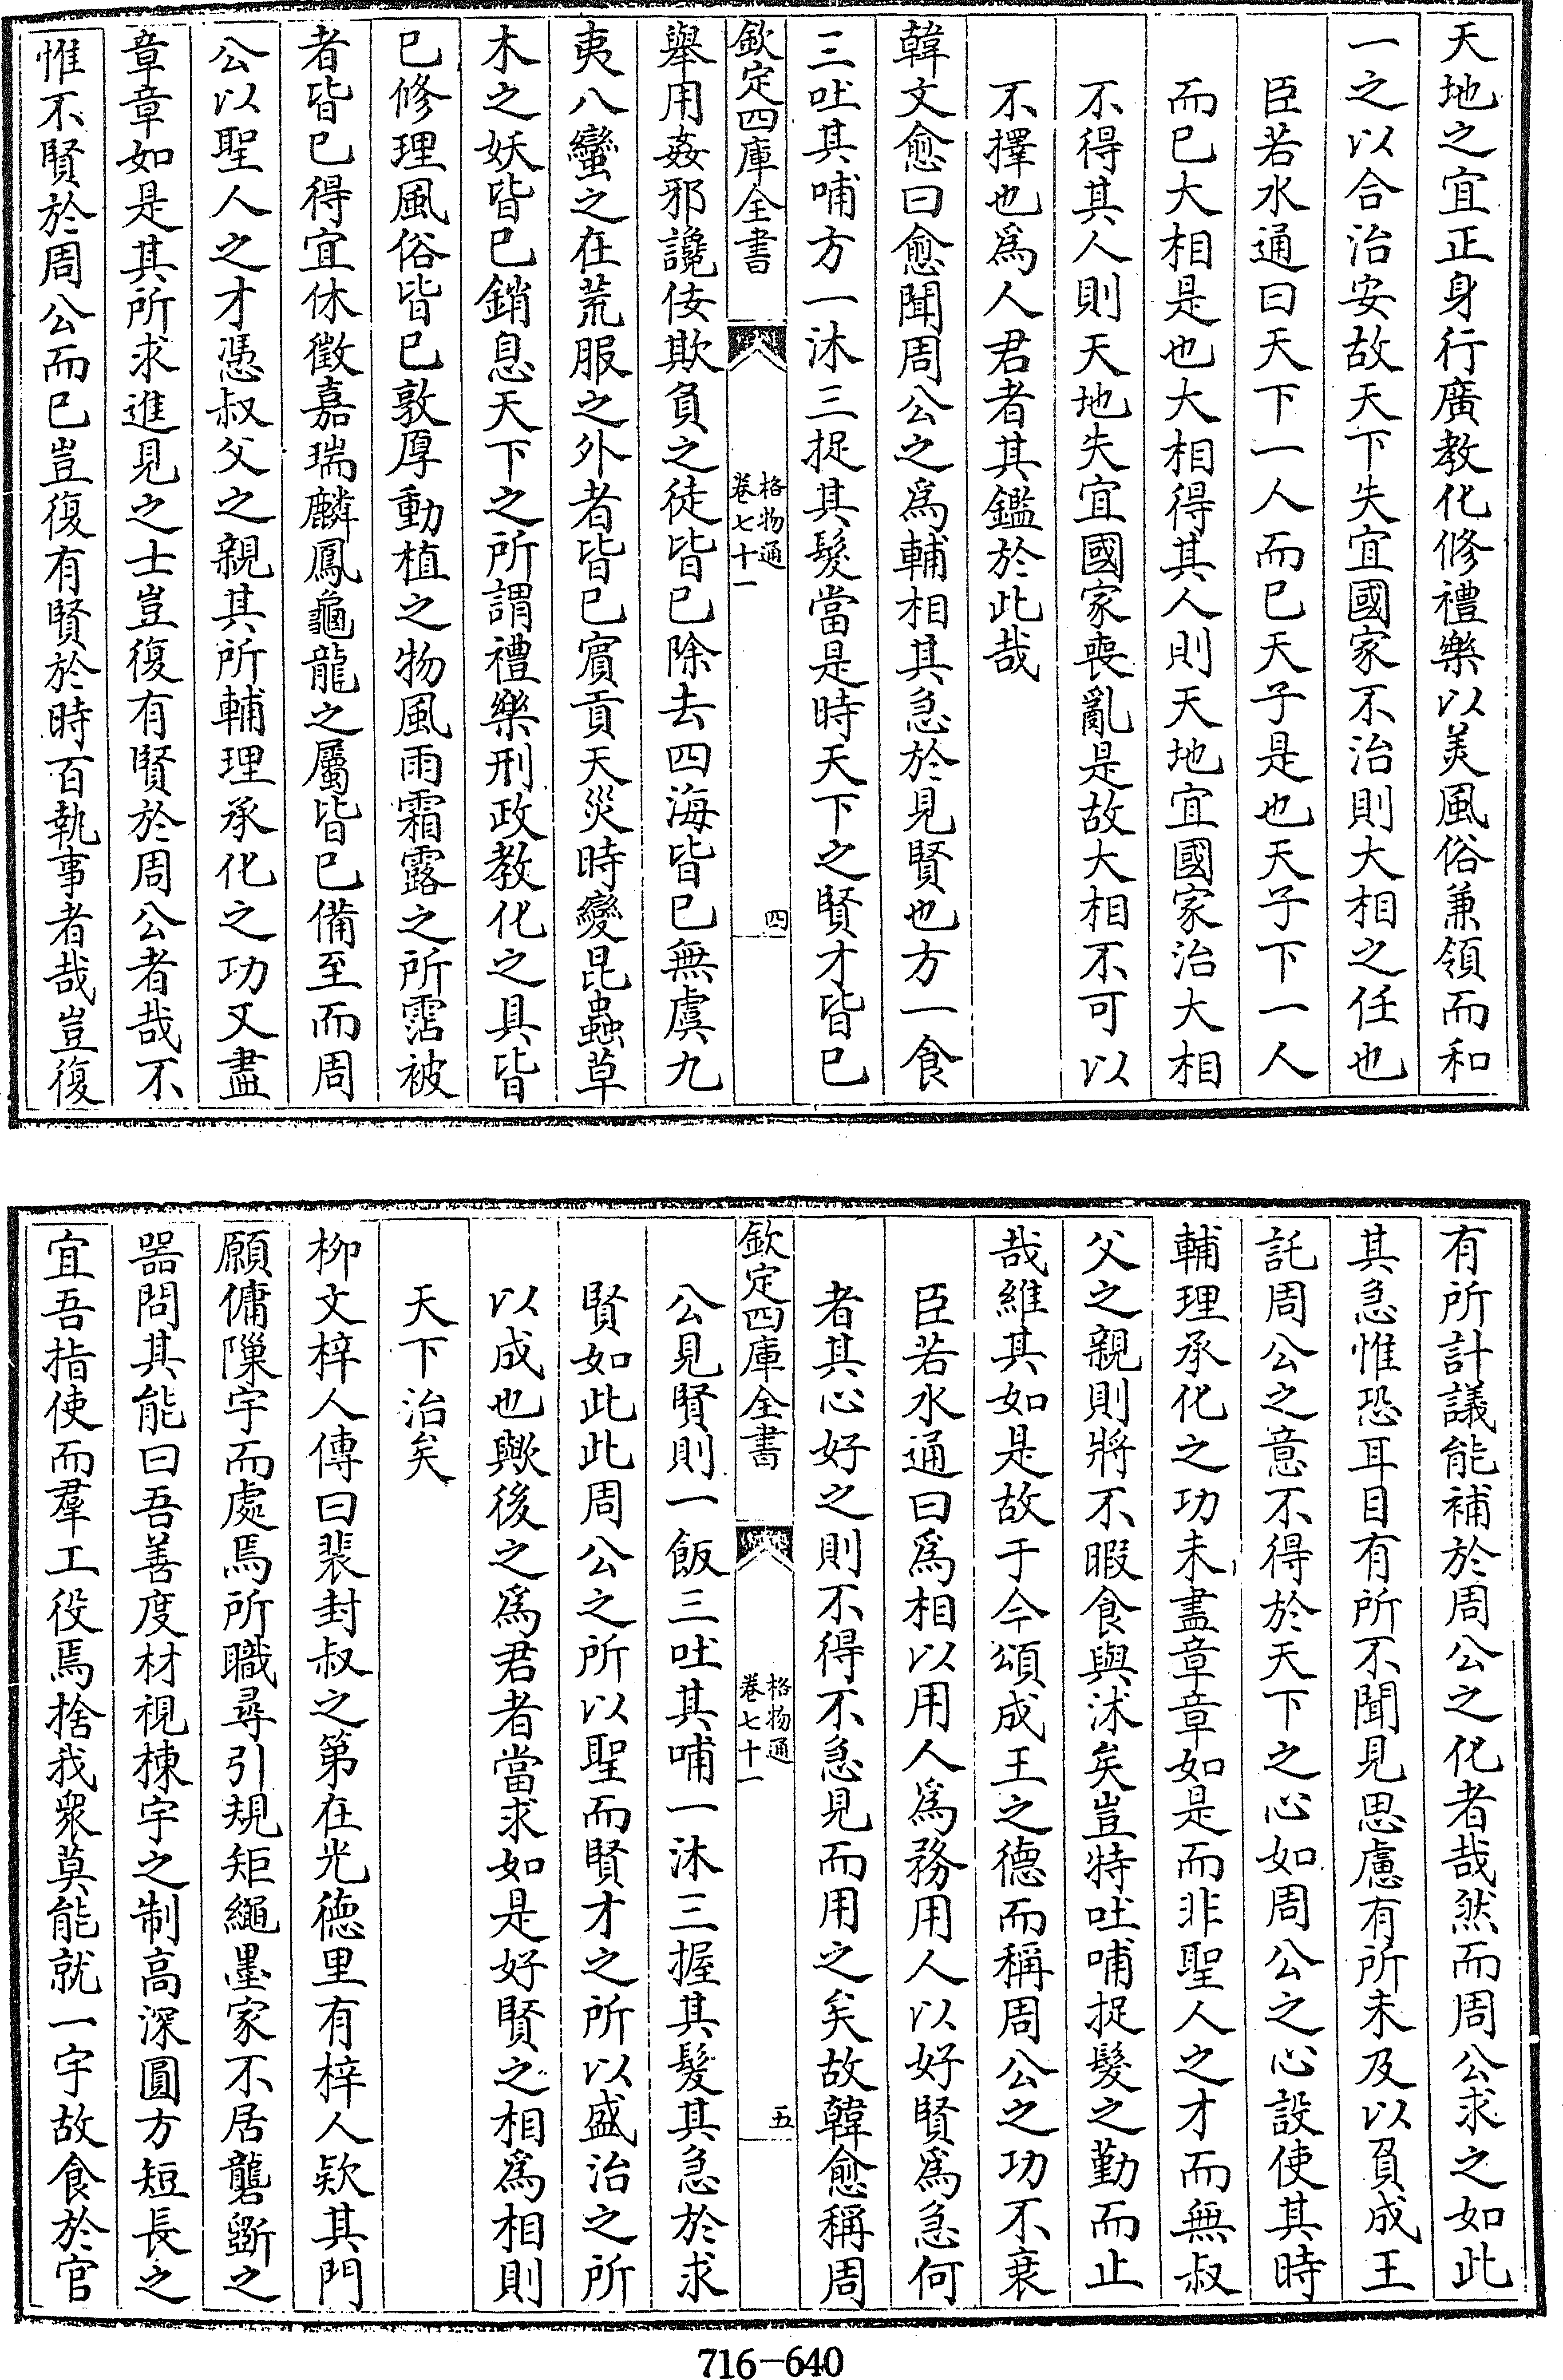 天地之宜正身行廣教化修禮樂以美風俗兼領而和
一之以合治安故天下失宜國家不治則大相之任也
臣若水通曰天下一人而已天子是也天子下一人
而已大相是也大相得其人則天地宜國家治大相
不得其人則天地失宜國家喪亂是故大相不可以
不擇也為人君者其鑑於此哉
韓文愈曰愈聞周公之為輔相其急於見賢也方一食
三吐其哺方一沐三捉其髮當是時天下之賢才皆已
欽定四庫全書
格物通
卷七十一
四
舉用姦邪讒佞欺負之徒皆已除去四海皆已無虞九
夷八蠻之在荒服之外者皆已賔貢天災時變昆蟲草
木之妖皆已銷息天下之所謂禮樂刑政教化之具皆
已修理風俗皆已敦厚動植之物風雨霜露之所霑被
者皆已得宜休徵嘉瑞麟鳳龜龍之屬皆已備至而周
公以聖人之才憑叔父之親其所輔理承化之功又盡
章章如是其所求進見之士豈復有賢於周公者哉不
惟不賢於周公而已豈復有賢於時百執事者哉豈復
有所計議能補於周公之化者哉然而周公求之如此
其急惟恐耳目有所不聞見思慮有所未及以負成王
託周公之意不得於天下之心如周公之心設使其時
輔理承化之功未盡章章如是而非聖人之才而無叔
父之親則將不暇食與沭矣豈特吐哺捉髮之勤而止
哉維其如是故于今頌成王之德而稱周公之功不衰
臣若水通曰為相以用人為務用人以好賢為急何
者其心好之則不得不急見而用之矣故韓愈稱周
欽定四庫全書
格物通
卷七十一
五
公見賢則一飯三吐其哺一沐三握其髮其急於求
賢如此此周公之所以聖而賢才之所以盛治之所
以成也歟後之為君者當求如是好賢之相為相則
天下治矣
柳文梓人傳曰裴封叔之第在光德里有梓人欵其門
願傭隟宇而處焉所職尋引規矩繩墨家不居礱斲之
器問其能曰吾善度材視棟宇之制高深圓方短長之
宜吾指使而羣工役焉捨我衆莫能就一宇故食於官
716-640